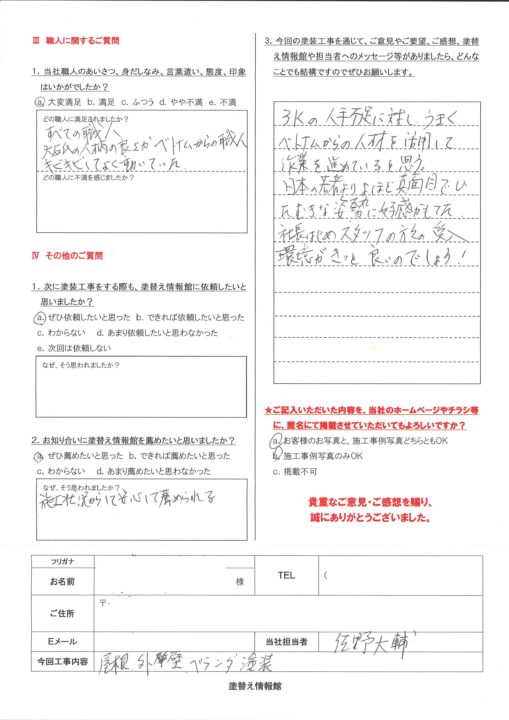 Ⅲ 職人に関するご質問
1. 当社職人のあいさつ、身だしなみ、言葉遣い、態度、印象
はいかがでしたか？
a. 大変満足 b. 満足 c. ふつう d. やや不満 e. 不満
どの職人に満足されましたか？
すべての職人
の人柄の良さがベトナムからの職人
きびきびしてよく動いていた
どの職人に不満を感じましたか？
Ⅳ その他のご質問
1. 次に塗装工事をする際も、塗替え情報館に依頼したいと
思いましたか？
a. ぜひ依頼したいと思った b. できれば依頼したいと思った
c. わからない d. あまり依頼したいと思わなかった
e. 次回は依頼しない
なぜ、そう思われましたか？
2. お知り合いに塗替え情報館を薦めたいと思いましたか？
a. ぜひ薦めたいと思った b. できれば薦めたいと思った
c. わからない d. あまり薦めたいと思わなかった
なぜ、そう思われましたか？
施工状況からして安心して薦められる
3. 今回の塗装工事を通じて、ご意見やご要望、ご感想、塗替
え情報館や担当者へのメッセージ等がありましたら、どんな
ことでも結構ですのでぜひお願いします。
3Kの人手不足に対し、うまく
ベトナムからの人材を活用して
作業を進めていると思う。
日本の若者よりよほど真面目でひ
たむきな姿勢に好感がもてた
社長はじめスタッフの方々の受入
環境がきっと良いのでしょう！
★ご記入いただいた内容を、当社のホームページやチラシ等
に、匿名にて掲載させていただいてもよろしいですか？
a. お客様のお写真と、施工事例写真どちらともOK
b. 施工事例写真のみOK
c. 掲載不可
貴重なご意見・ご感想を賜り、
誠にありがとうございました。
フリガナ
お名前 様 TEL (
ご住所 〒
Eメール 当社担当者 佐野大輔
今回工事内容 屋根、外壁、ベランダ塗装
塗替え情報館